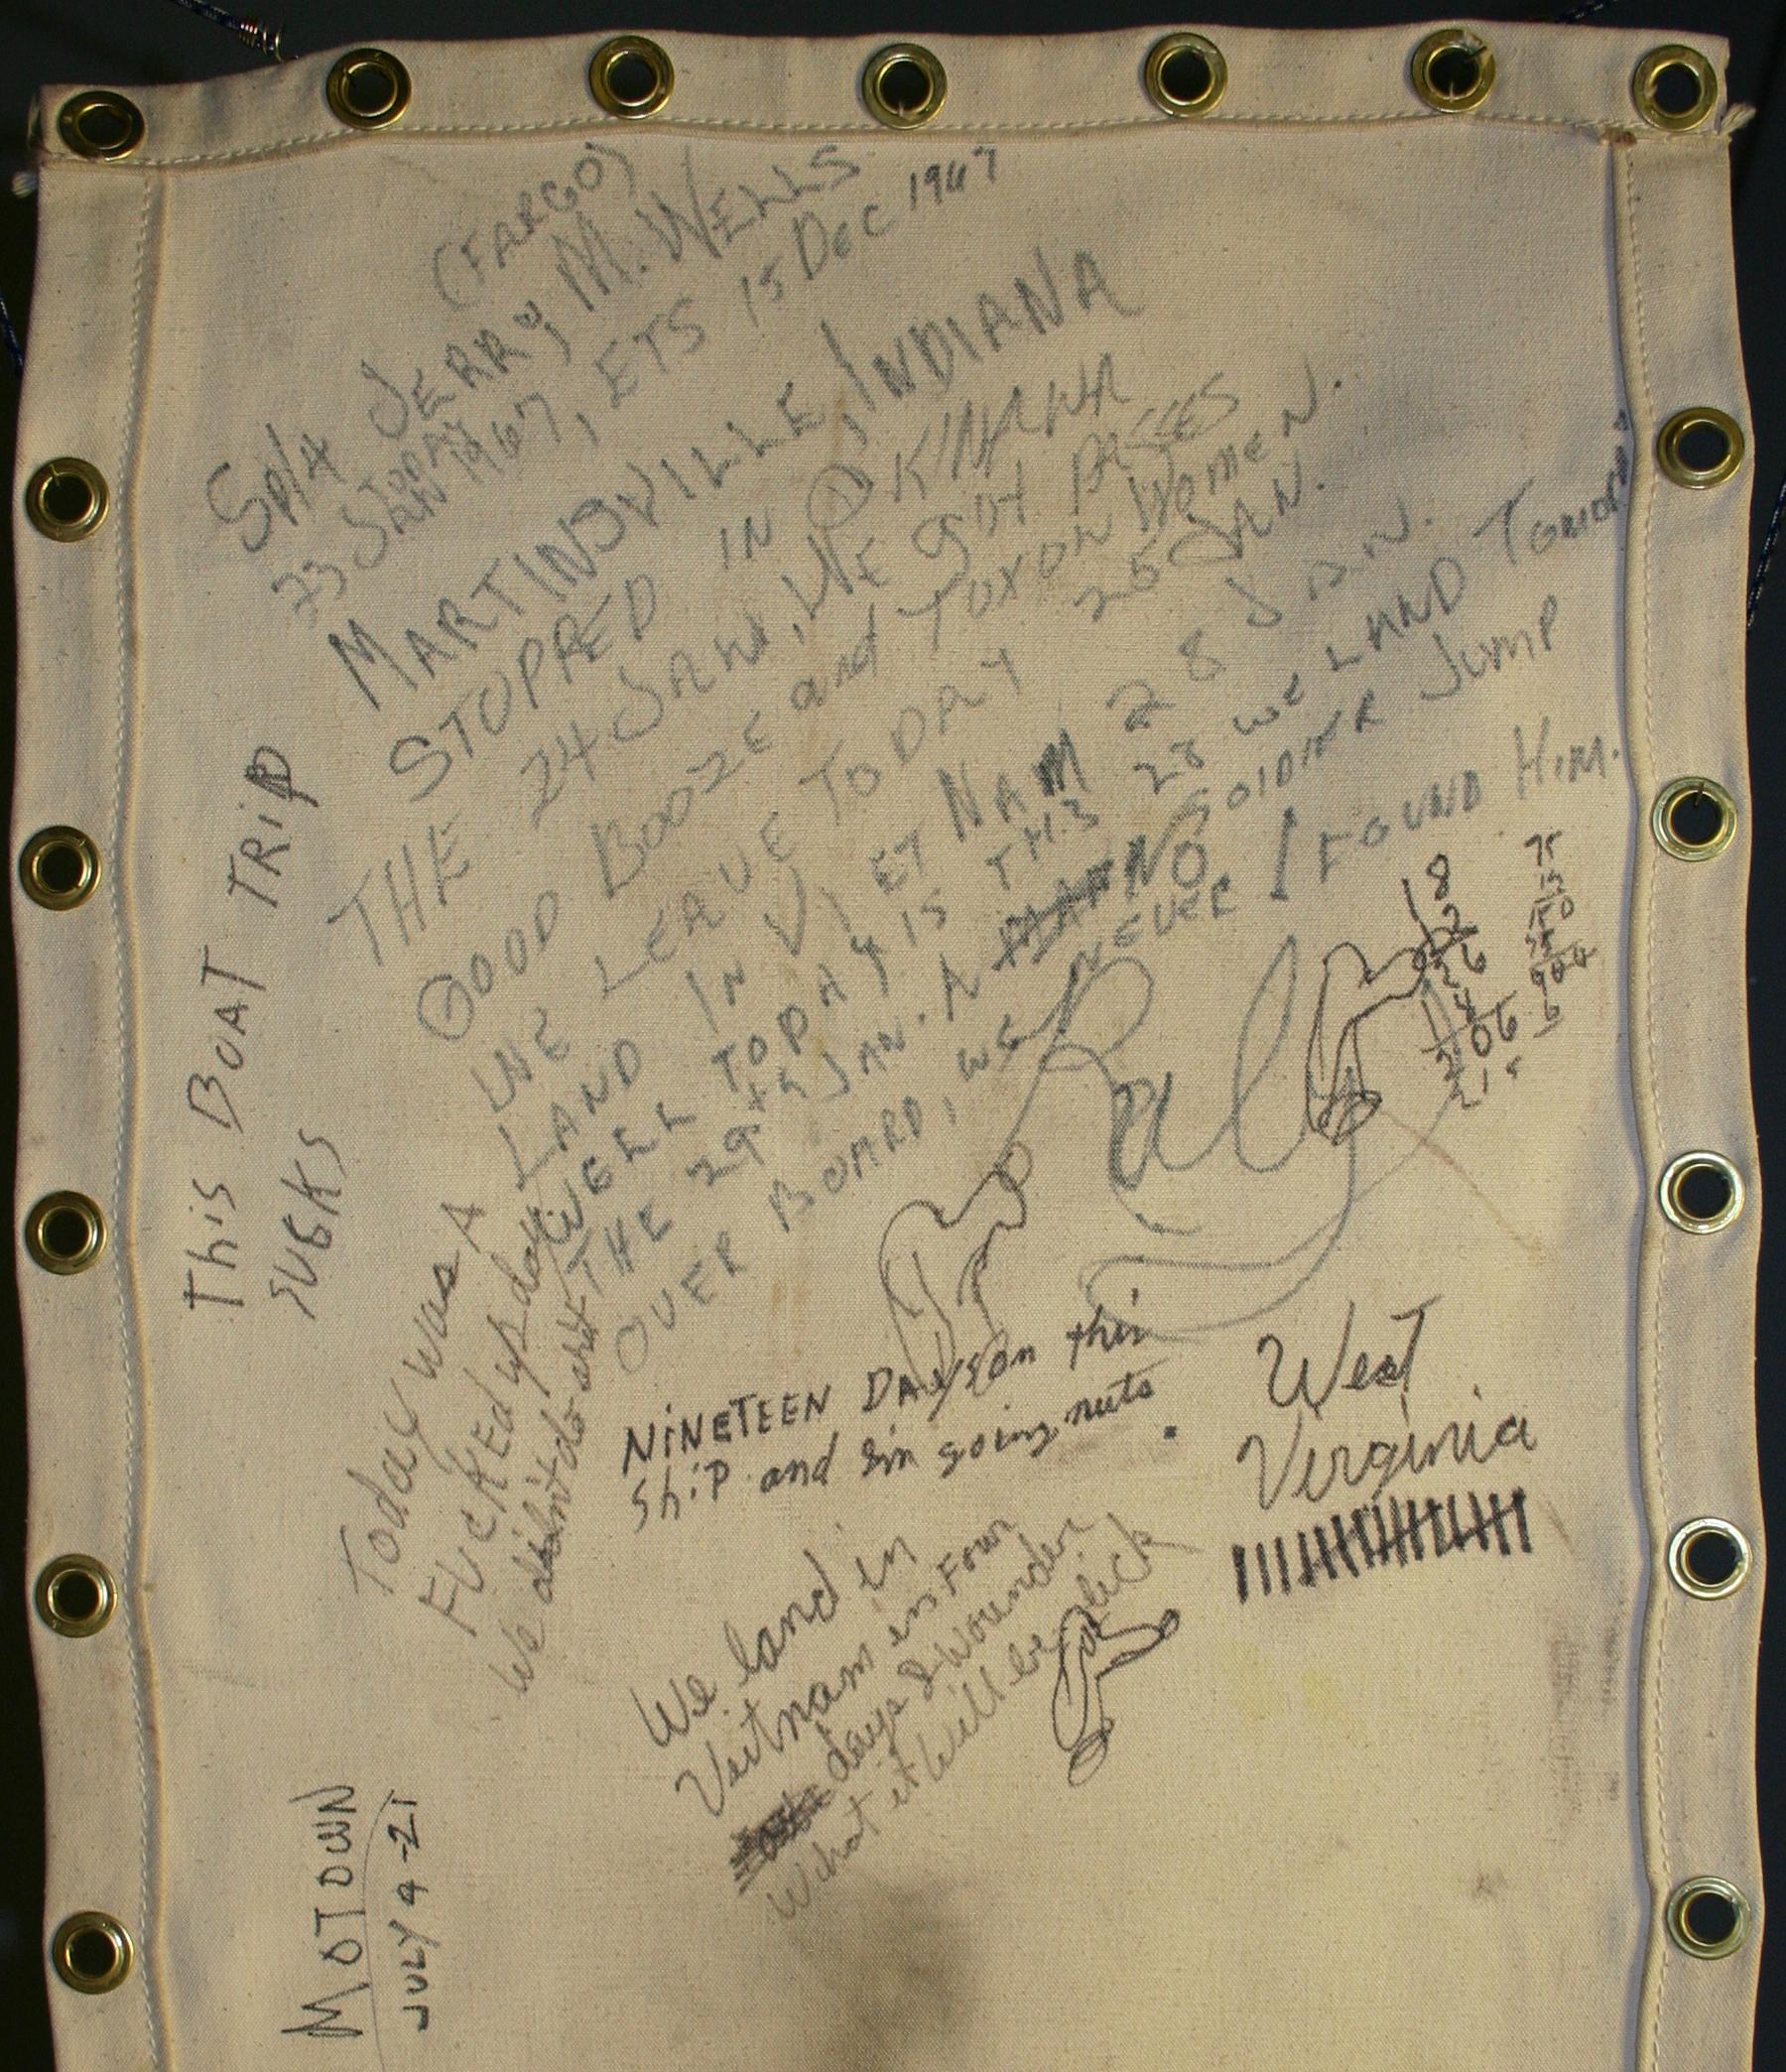 (FARGO)
SP/4 JERRY M. WELLS
TODAY
23 JAN 1967, ETS 15 DEC 1967
MARTINSVILLE, INDIANA
STOPPED IN OKINAWA
THE 24 JAN, WE got PASSES
GOOD BOOZE and WOMEN.
WE LEAVE TODAY 25 JAN.
LAND IN VIET NAM 28 JAN.
WEEL TODAY IS THE 28 WE LAND
THE 29th JAN. A NO SOLDIER JUMP
OVER BOARD, WE NEVER FOUND HIM.
This BOAT TRiP
SUCKS
Today was A
FUCKEd up day
We didn't do
NiNETEEN DAYS on this
ShiP and Im going nuts.
West
Virginia
We land in
Veitnam in Four
days I Wounder
What it Will be like
8
2
6
75
15
MOTOWN
JULY 4-21